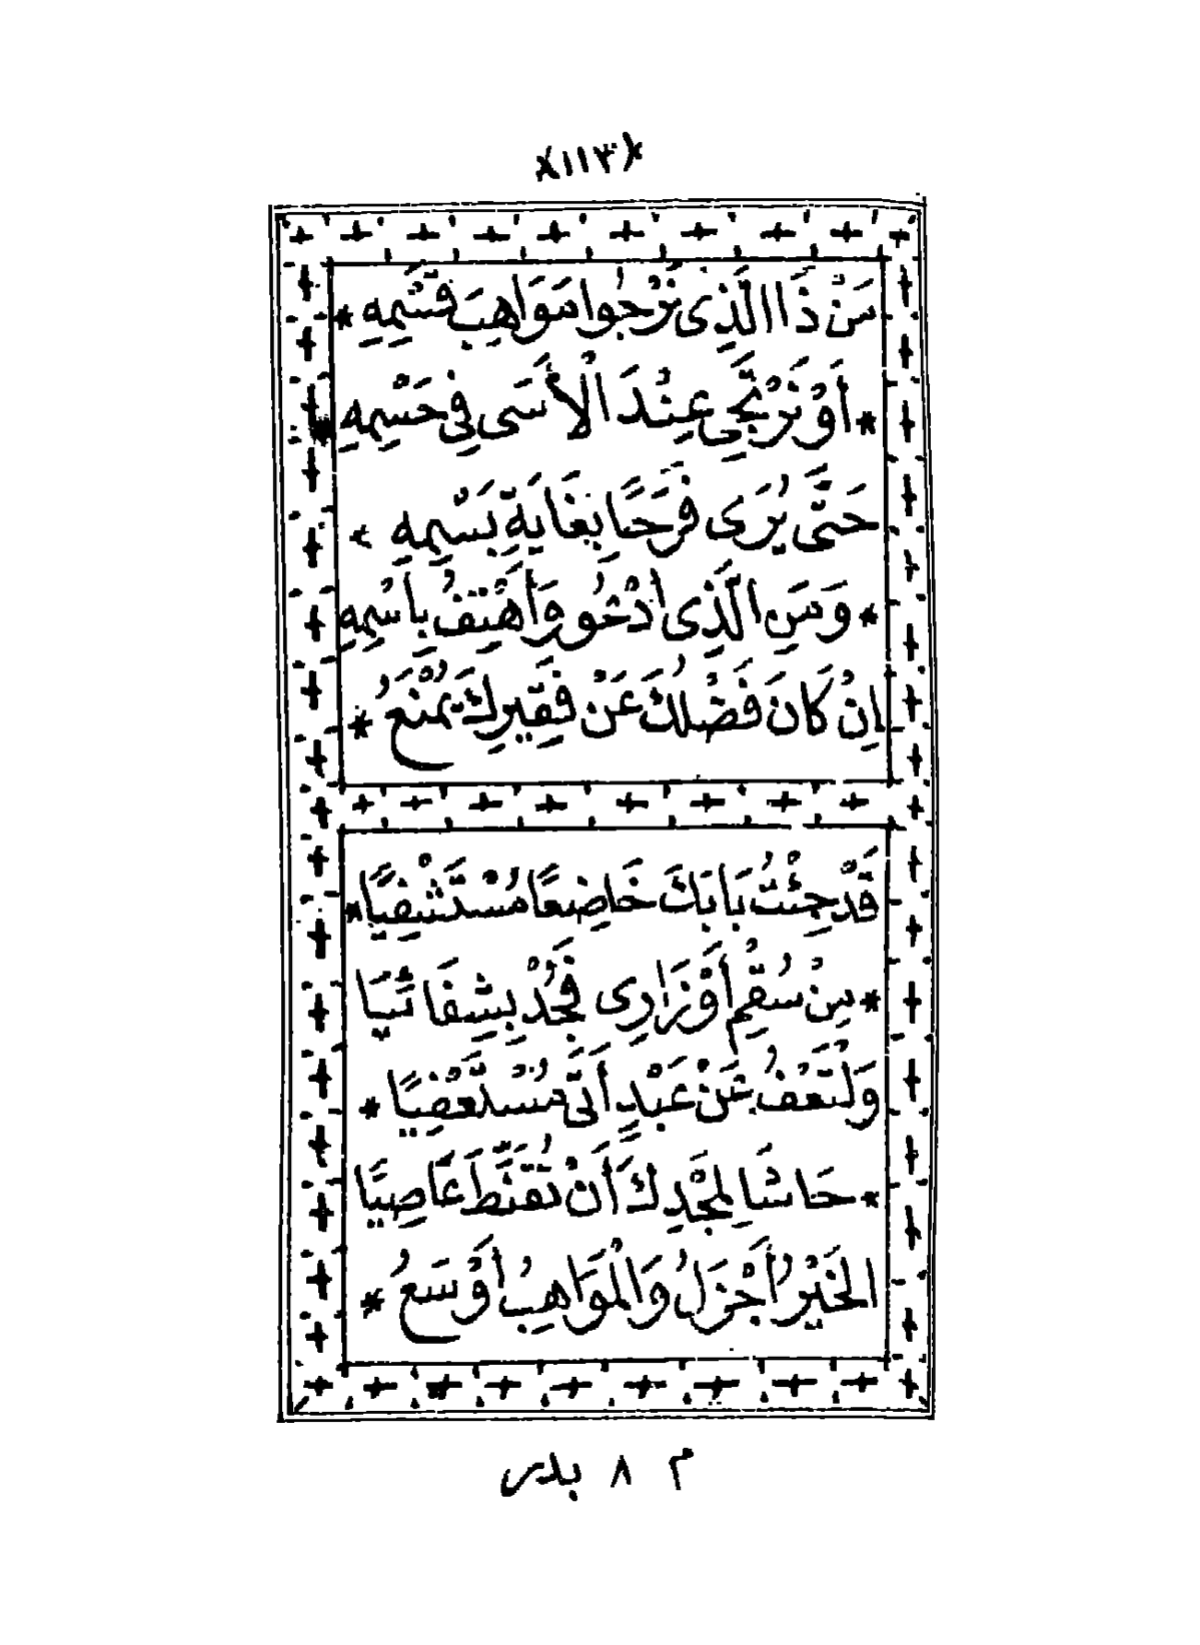 ﴿١١٣﴾
مَنْ ذَا الَّذِى نَرْجُوا مَوَاهِبَ قَسْمِهِ *
* أَوْ نَرْتَجِى عِنْدَ الْأَسَى فِى حَسْمِهِ *
حَتَّى يُرَى فَرَحًا بِغَايَةِ بَسْمِهِ *
* وَمَنِ الَّذِى أَدْعُو وَأَهْتِفُ بِاسْمِهِ
اِنْ كَانَ فَضْلُكَ عَنْ فَقِيرِكَ يُمْنَعُ *
قَدْ جِئْتُ بَابَكَ خَاضِعًا مُسْتَشْفِيًا *
* مِنْ سُقْمِ أَوْزَارِى فَجُدْ بِشِفَائِيَا
وَلْتَعْفُ عَنْ عَبْدٍ أَتَى مُسْتَعْفِيًا *
* حَاشَا لِمَجْدِكَ أَنْ تُقَنِّطَ عَاصِيًا
الخَيْرُ أَجْزَلُ وَالْمَوَاهِبُ أَوْسَعُ *
م ٨ بدر